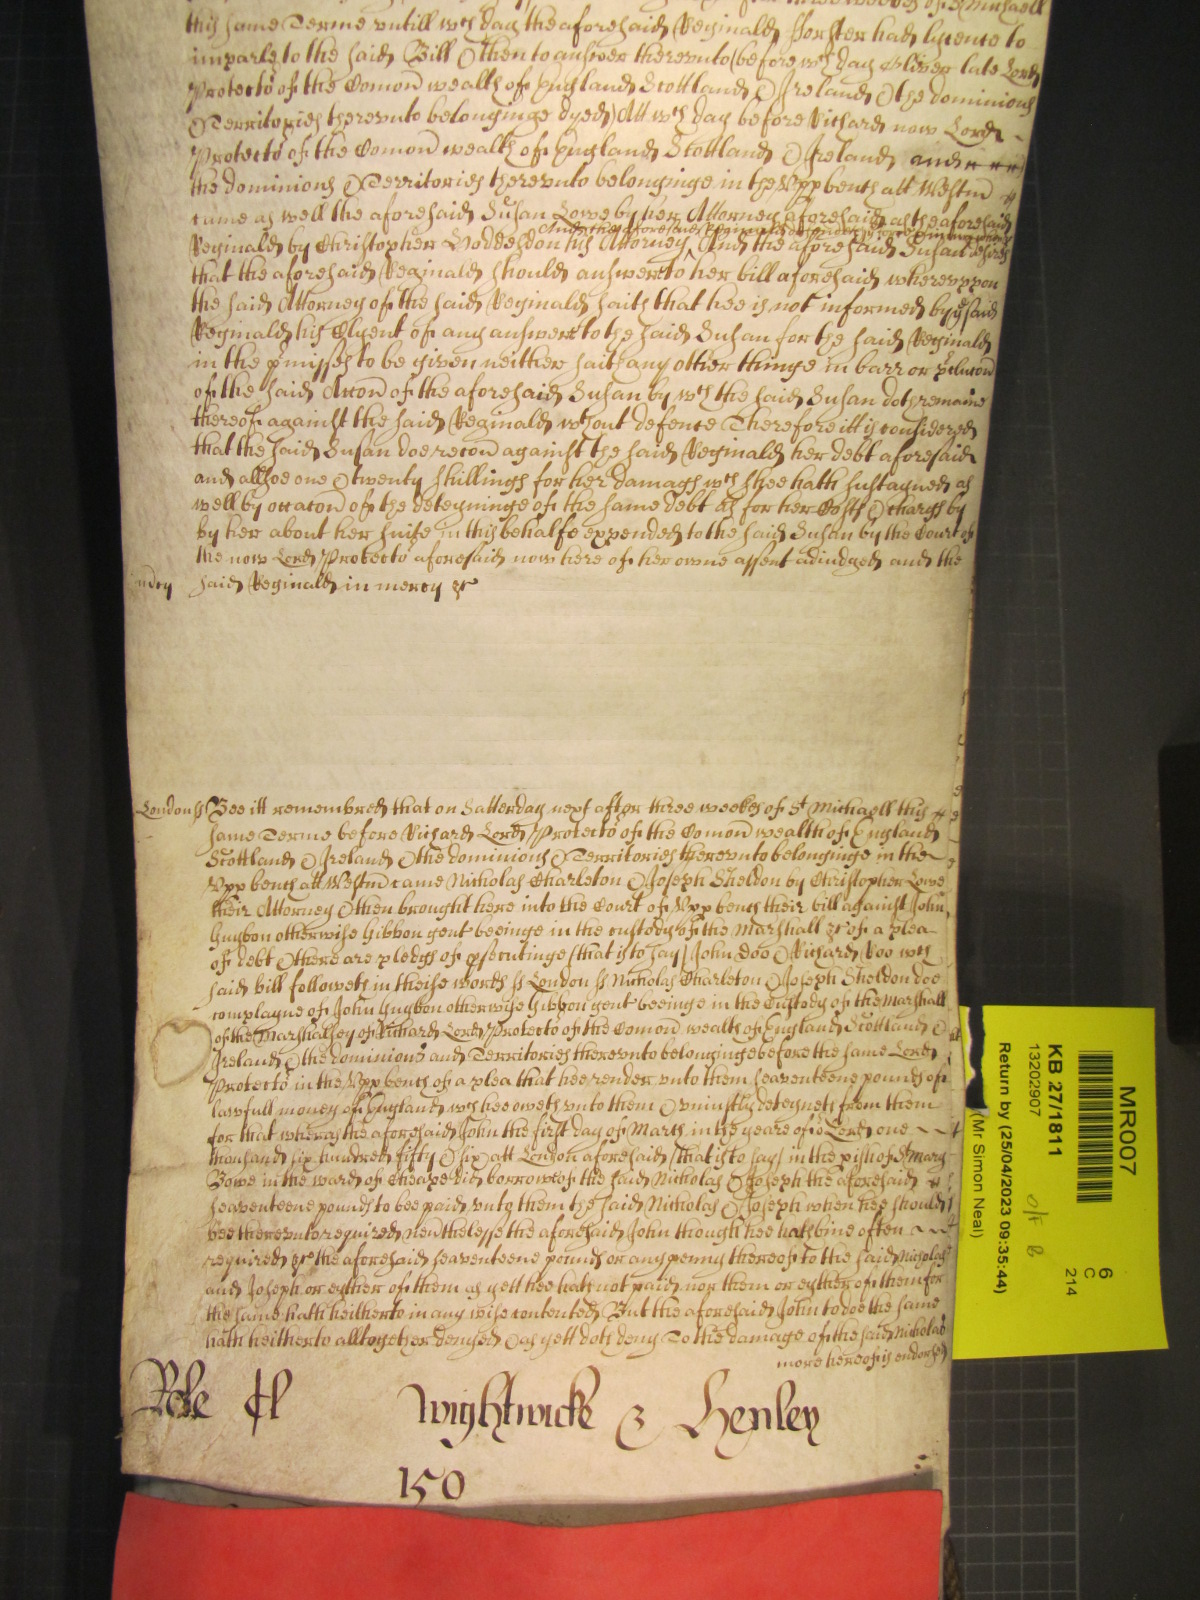 this same Terme untill wch day the aforesaid Reginald Forster had lycence to
imparle to the said Bill & then to answer thereunto (before wch day Oliver late Lord
Protector of the Comon wealth of England Scottland & Ireland & the dominions
& Territories thereunto belonginge dyed) Att wch day before Richard now Lord
Protector of the Comon wealth of England Scottland & Ireland and
the dominions & Territories thereunto belonginge in the Upp bench att Westm
came as well the aforesaid Susan Lowe by her Attorney aforesaid as the aforesaid
Reginald by Christopher Goddesdon his Attorney And the aforesaid Susan desires
that the aforesaid Reginald should answere to her bill aforesaid whereuppon
the said Attorney of the said Reginald saith that hee is not informed by ye said
Reginald his Clyent of any answere to the said Susan for the said Reginald
in the pmisses to be given neither saith any other thinge in barr or pclusion
of the said Accon of the aforesaid Susan by wch the said Susan doth remaine
thereof against the said Reginald wthout defence Therefore itt is considered
that the said Susan doe recov against the said Reginald her debt aforesaid
and allsoe one & twenty shillings for her damags wch shee hath sustayned as
well by occacon of the deteyninge of the same debt as for her Costs & chargs by
by her about her suite in this behalfe expended to the said Susan by the Court of
the now Lord Protector aforesaid now here of her owne assent adiudged and the
said Reginald in mercy &c
London ss Bee itt remembred that on Satterday next after three weekes of St Michaell this
same Terme before Richard Lord Protector of the Comon wealth of England
Scottland & Ireland & the dominions & Territories thereunto belonginge in the
Upp bench att Westm came Nicholas Charleton & Joseph Sheldon by Christopher Lowe
their Attorney & then brought here into the Court of Upp bench their bill against John
Guybon otherwise Gibbon gent beeinge in the custody of the Marshall &c of a plea
of debt & there are pledgs of psecutinge (that is to say) John Doo & Richard Roo wch
said bill followeth in theise words ss London ss Nicholas Charleton & Joseph Sheldon doe
complayne of John Guybon otherwise Gibbon gent beeinge in the Custody of the Marshall
of the Marshallsey of Richard Lord Protector of the Comon wealth of England Scottland &
Ireland & the dominions and Territories thereunto belonginge before the same Lord
Protector in the Upp bench of a plea that hee render unto them seaventeene pounds of
lawfull money of England wch hee oweth unto them & uniustly deteyneth from them
for that wheras the aforesaid John the first day of March in the yeare of or Lord one
thousand six hundred fifty & six att London aforesaid (that is to say) in the pish of St Mary
Bowe in the ward of Cheape did borrow of the said Nicholas & Joseph the aforesaid
seaventeene pounds to bee paid unto them the said Nicholas & Joseph when hee should
bee thereunto required nevthelesse the aforesaid John though hee hath bine often
required &c the aforesaid seaventeene pounds or any penny thereof to the said Nicholas
and Joseph or eyther of them as yett hee hath not paid nor them or eyther of them for
the same hath heitherto in any wise contented But the aforesaid John to doe the same
hath heitherto alltogether denyed & as yett doth deny To the damage of the said Nicholas
more hereof is endorsed
Role
Wightwicke & Henley
150
MR007
6
C
214
KB 27/1811
13202907
Return by (25/04/2023 09:35:44)
(Mr Simon Neal)